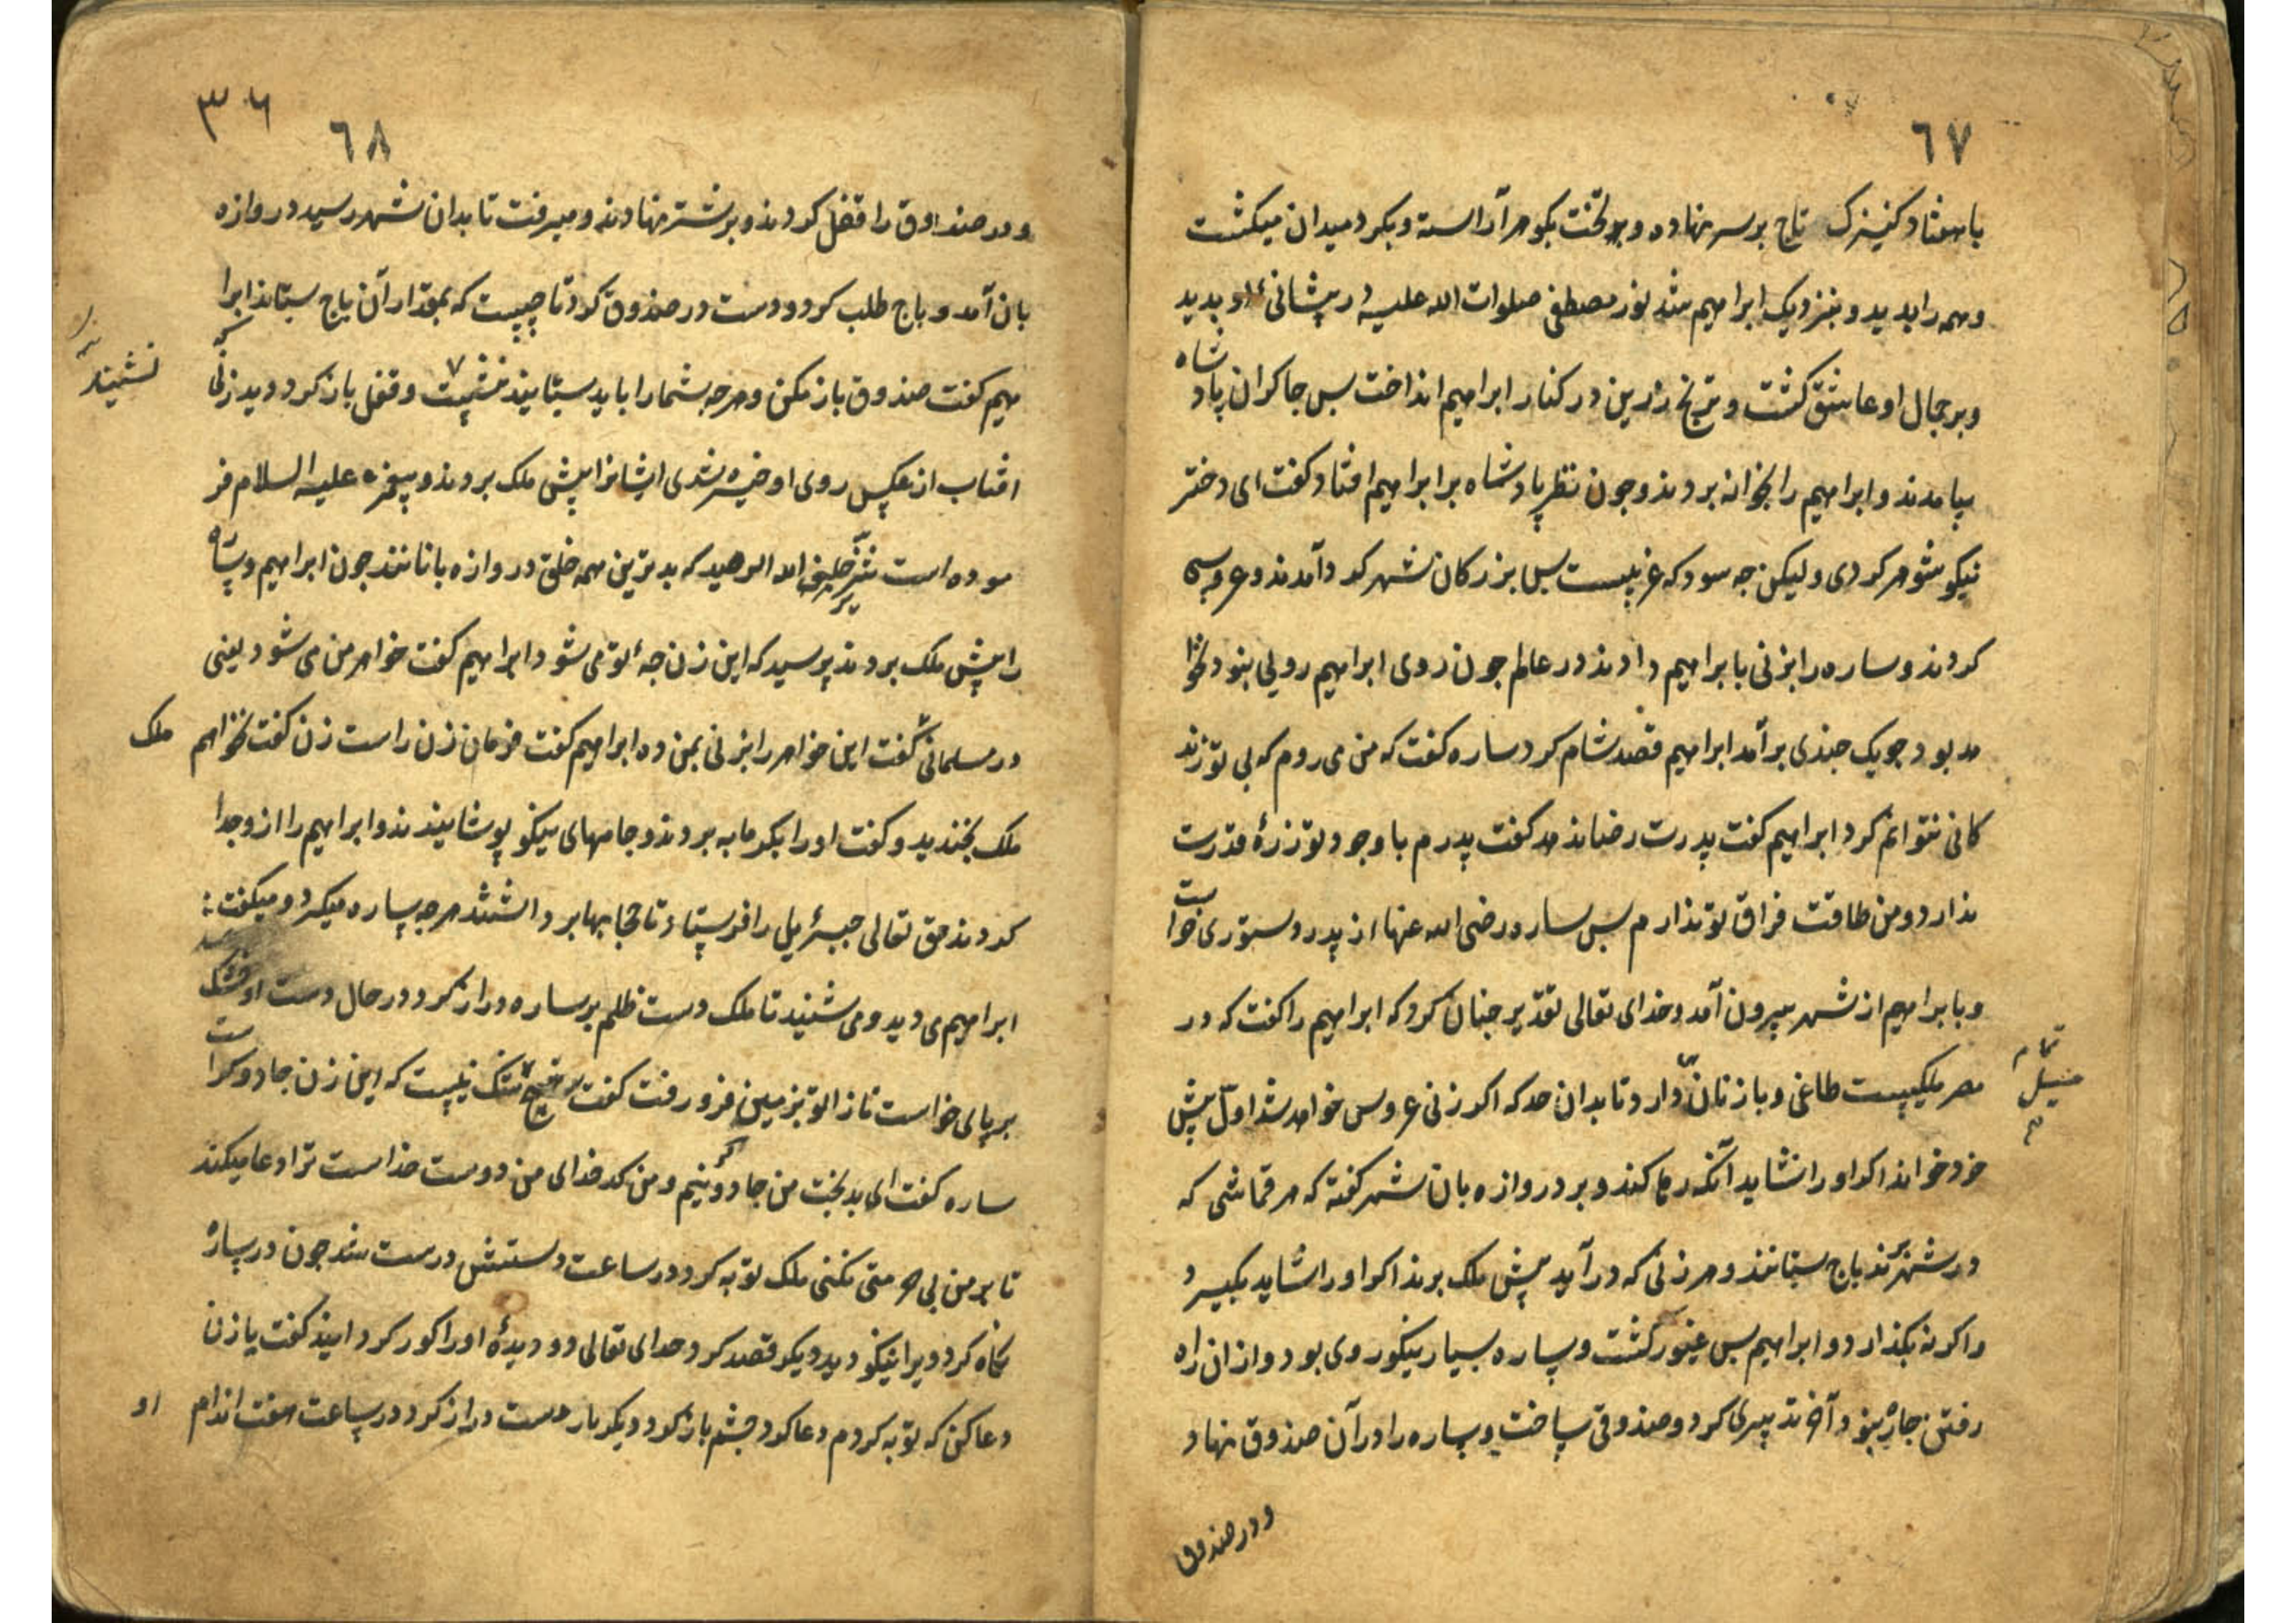 ٦٧
با هفتاد کنیزک تاج بر سر نهاده و بر تخت بکوهر آراسته و بکرد میدان میکشت
و همه را بدید و بنزدیک ابراهیم شد نور مصطفی صلوات الله علیه در پیشانئ او بدید
و بر جمال او عاشق کشت و ترنج زرین در کنار ابراهیم انداخت بس جاکران پادشاه
بیامدند و ابراهیم را بخوانه بردند و جون نظر پادشاه بر ابراهیم افتاد کفت ای دختر
نیکو شوهر کردی ولیکن جه سود که غریبست بس بزرکان شهر کرد آمدند و عروسی
کردند و ساره را بزنی با ابراهیم دادند در عالم جون روی ابراهیم رویی نبود نخوا
هد بود جو یک جندی بر آمد ابراهیم قصد شام کرد ساره کفت که من می روم که بی تو زند
کانی نتوانم کرد ابراهیم کفت پدرت رضا ندهد کفت پدرم با وجود تو ذرهٔ قدرت
ندارد و من طاقت فراق تو ندارم بس ساره رضی الله عنها از پدر دستوری خواست
و با ابراهیم از شهر بیرون آمد و خدای تعالی تقدیر جنان کرد که ابراهیم را کفت که در
مصر ملکیست طاغی و با زنان دارد تا بدان حد که اکر زنی عروس خواهد شد اول پیش
خود خواند اکر او را نشاید آنکه رها کند و بر دروازه بان شهر کفته که هر قماشی که
در شهر برند باج ستانند و هر زنی که در آید پیش ملک برند اکر او را شاید بکیرد
و اکر نه بکذارد و ابراهیم بس غیور کشت و ساره بسیار نیکو روی بود و از ان راه
رفتن جاره نبود آخر تدبیری کرد و صندوقی ساخت و ساره را در آن صندوق نهاد
و در صندوق
٦٨
٣٦
و در صندوق را قفل کردند و بر شتر نهادند و میرفت تا بدان شهر رسید دروازه
بان آمد و باج طلب کرد و دست در صندوق کرد تا چیست که بمقدار آن باج ستاند ابرا
هیم کفت صندوق باز مکن و هرجه شما را باید ستانید و قفل باز کرد دید زنی که
افتاب از عکس روی او خیره شدی ایشانرا پیش ملک بردند و پیغمبر علیه السلام فر
موده است که بدترین همه خلق دروازه بانانند جون ابراهیم و ساره
را پیش ملک بردند پرسید که این زن جهٔ تو می شود ابراهیم کفت خواهر من می شود یعنی
در مسلمانی کفت این خواهر را بزنی بمن ده ابراهیم کفت فرمان زن راست زن کفت نخواهم
ملک
ملک بخندید و کفت او را بکرمابه بردند و جامهای نیکو پوشانیدند و ابراهیم را از و جدا
کردند حق تعالی جبرئیل را فرستاد تا حجابها برداشتند هرجه ساره میکرد و میکفت
ابراهیم می دید و می شنید تا ملک دست ظلم بر ساره دراز کرد در حال دست او خشک شد
بر پای خواست تا زانو بزمین فرو رفت کفت هیچ شک نیست که این زن جادوکر است
ساره کفت ای بدبخت من جادوکر نیم و من که خدای من دوست خداست ترا دعا میکند
تا بر من بی حرمتی نکنی ملک توبه کرد در ساعت دستش درست شد جون در ساره
نکاه کرد ویرا نیکو دید دیکر قصد کرد خدای تعالی دو دیدهٔ او را کور کردانید کفت یا زن
دعا کن که توبه کردم دعا کرد چشم باز کرد دیکر بار دست دراز کرد در ساعت هفت اندام
او